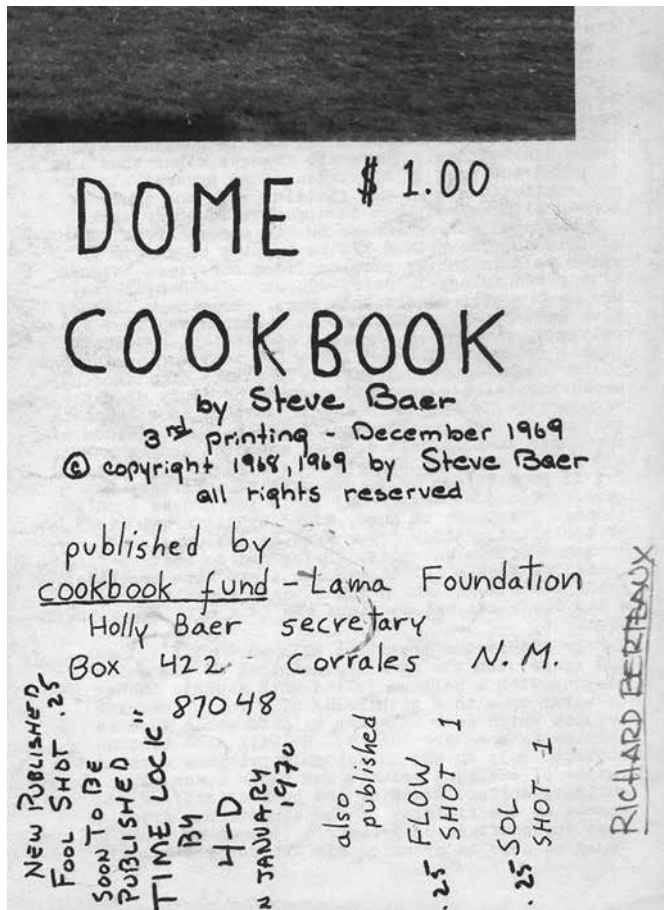 DOME $ 1.00
COOKBOOK
by Steve Baer
3rd printing - December 1969
© copyright 1968, 1969 by Steve Baer
all rights reserved
published by
cookbook fund - Lama Foundation
Holly Baer secretary
Box 422 Corrales N.M.
87048
NEW PUBLISHED
FOOL SHOT .25
SOON TO BE
PUBLISHED
TIME LOCK"
BY
4-D
N JANUARY
1970
also
published
.25 FLOW
SHOT 1
.25 SOL
SHOT 1
RICHARD BERTEAUX